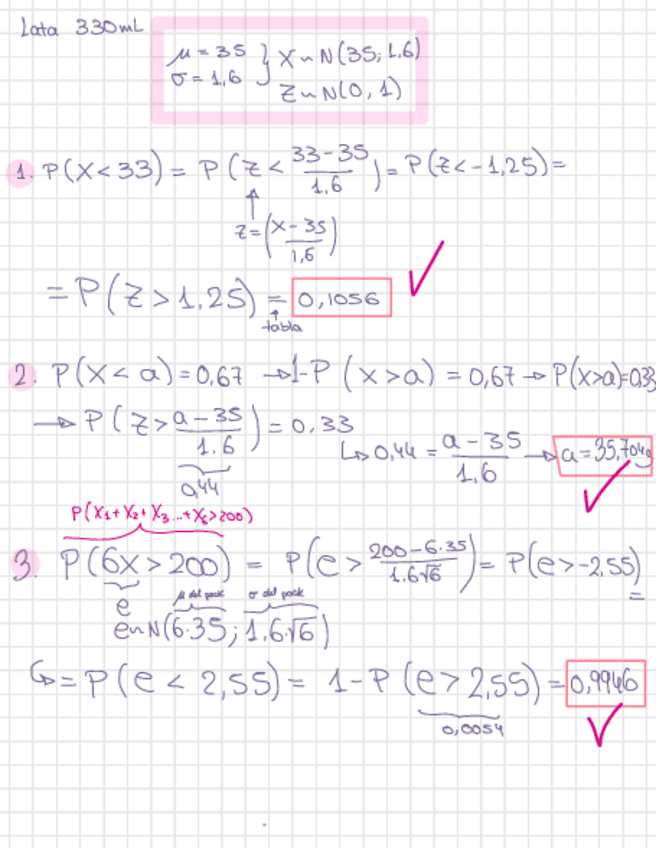 Lata 330mL
μ = 35
σ = 1,6 } X ~ N(35; 1,6)
Z ~ N(0, 1)
1. P(X < 33) = P(Z < (33-35)/1,6) = P(Z < -1,25) =
Z = (X - 35)/1,6
= P(Z > 1,25) = 0,1056
tabla
2. P(X < a) = 0,67 → 1-P(X > a) = 0,67 → P(X>a)=0,33
→ P(Z > (a - 35)/1.6) = 0,33
0,44
↳ 0,44 = (a - 35)/1,6 → a = 35,704g
P(X1 + X2 + X3 ... + X6 > 200)
3. P(6X > 200) = P(e > (200-6·35)/1.6√6) = P(e > -2,55) =
e μ del pack σ del pack
e ~ N(6·35; 1,6·√6)
↳ = P(e < 2,55) = 1 - P(e > 2,55) = 0,9946
0,0054